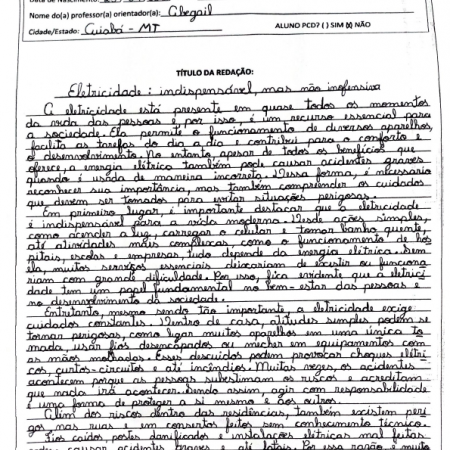 Nome do(a) professor(a) orientador(a): Abegail
Cidade/Estado: Cuiabá - MT ALUNO PCD? ( ) SIM (x) NÃO
TÍTULO DA REDAÇÃO:
Eletricidade: indispensável, mas não inofensiva
A eletricidade está presente em quase todos os momentos
da vida das pessoas e, por isso, é um recurso essencial para
a sociedade. Ela permite o funcionamento de diversos aparelhos,
facilita as tarefas do dia a dia e contribui para o conforto e
o desenvolvimento. No entanto, apesar de todos os benefícios que
oferece, a energia elétrica também pode causar acidentes graves
quando é usada de maneira incorreta. Dessa forma, é necessário
reconhecer sua importância, mas também compreender os cuidados
que devem ser tomados para evitar situações perigosas.
Em primeiro lugar, é importante destacar que a eletricidade
é indispensável para a vida moderna. Desde ações simples,
como acender a luz, carregar o celular e tomar banho quente,
até atividades mais complexas, como o funcionamento de hos
pitais, escolas e empresas, tudo depende da energia elétrica. Sem
ela, muitos serviços essenciais deixariam de existir ou funciona
riam com grande dificuldade. Por isso, fica evidente que a eletrici
dade tem um papel fundamental no bem-estar das pessoas e
no desenvolvimento da sociedade.
Entretanto, mesmo sendo tão importante, a eletricidade exige
cuidados constantes. Dentro de casa, atitudes simples podem se
tornar perigosas, como ligar muitos aparelhos em uma única to
mada, usar fios desencapados ou mecher em equipamentos com
as mãos molhadas. Esses descuidos podem provocar choques elétri
cos, curtos-circuitos e até incêndios. Muitas vezes, os acidentes
acontecem porque as pessoas subestimam os riscos e acreditam
que nada irá acontecer. Sendo assim, agir com responsabilidade
é uma forma de proteger a si mesmo e aos outros.
Além dos riscos dentro das residências, também existem peri
gos nas ruas e em consertos feitos sem conhecimento técnico.
Fios caídos, postes danificados e instalações elétricas mal feitas
causar acidentes graves e até fatais. Por essa razão, é muito